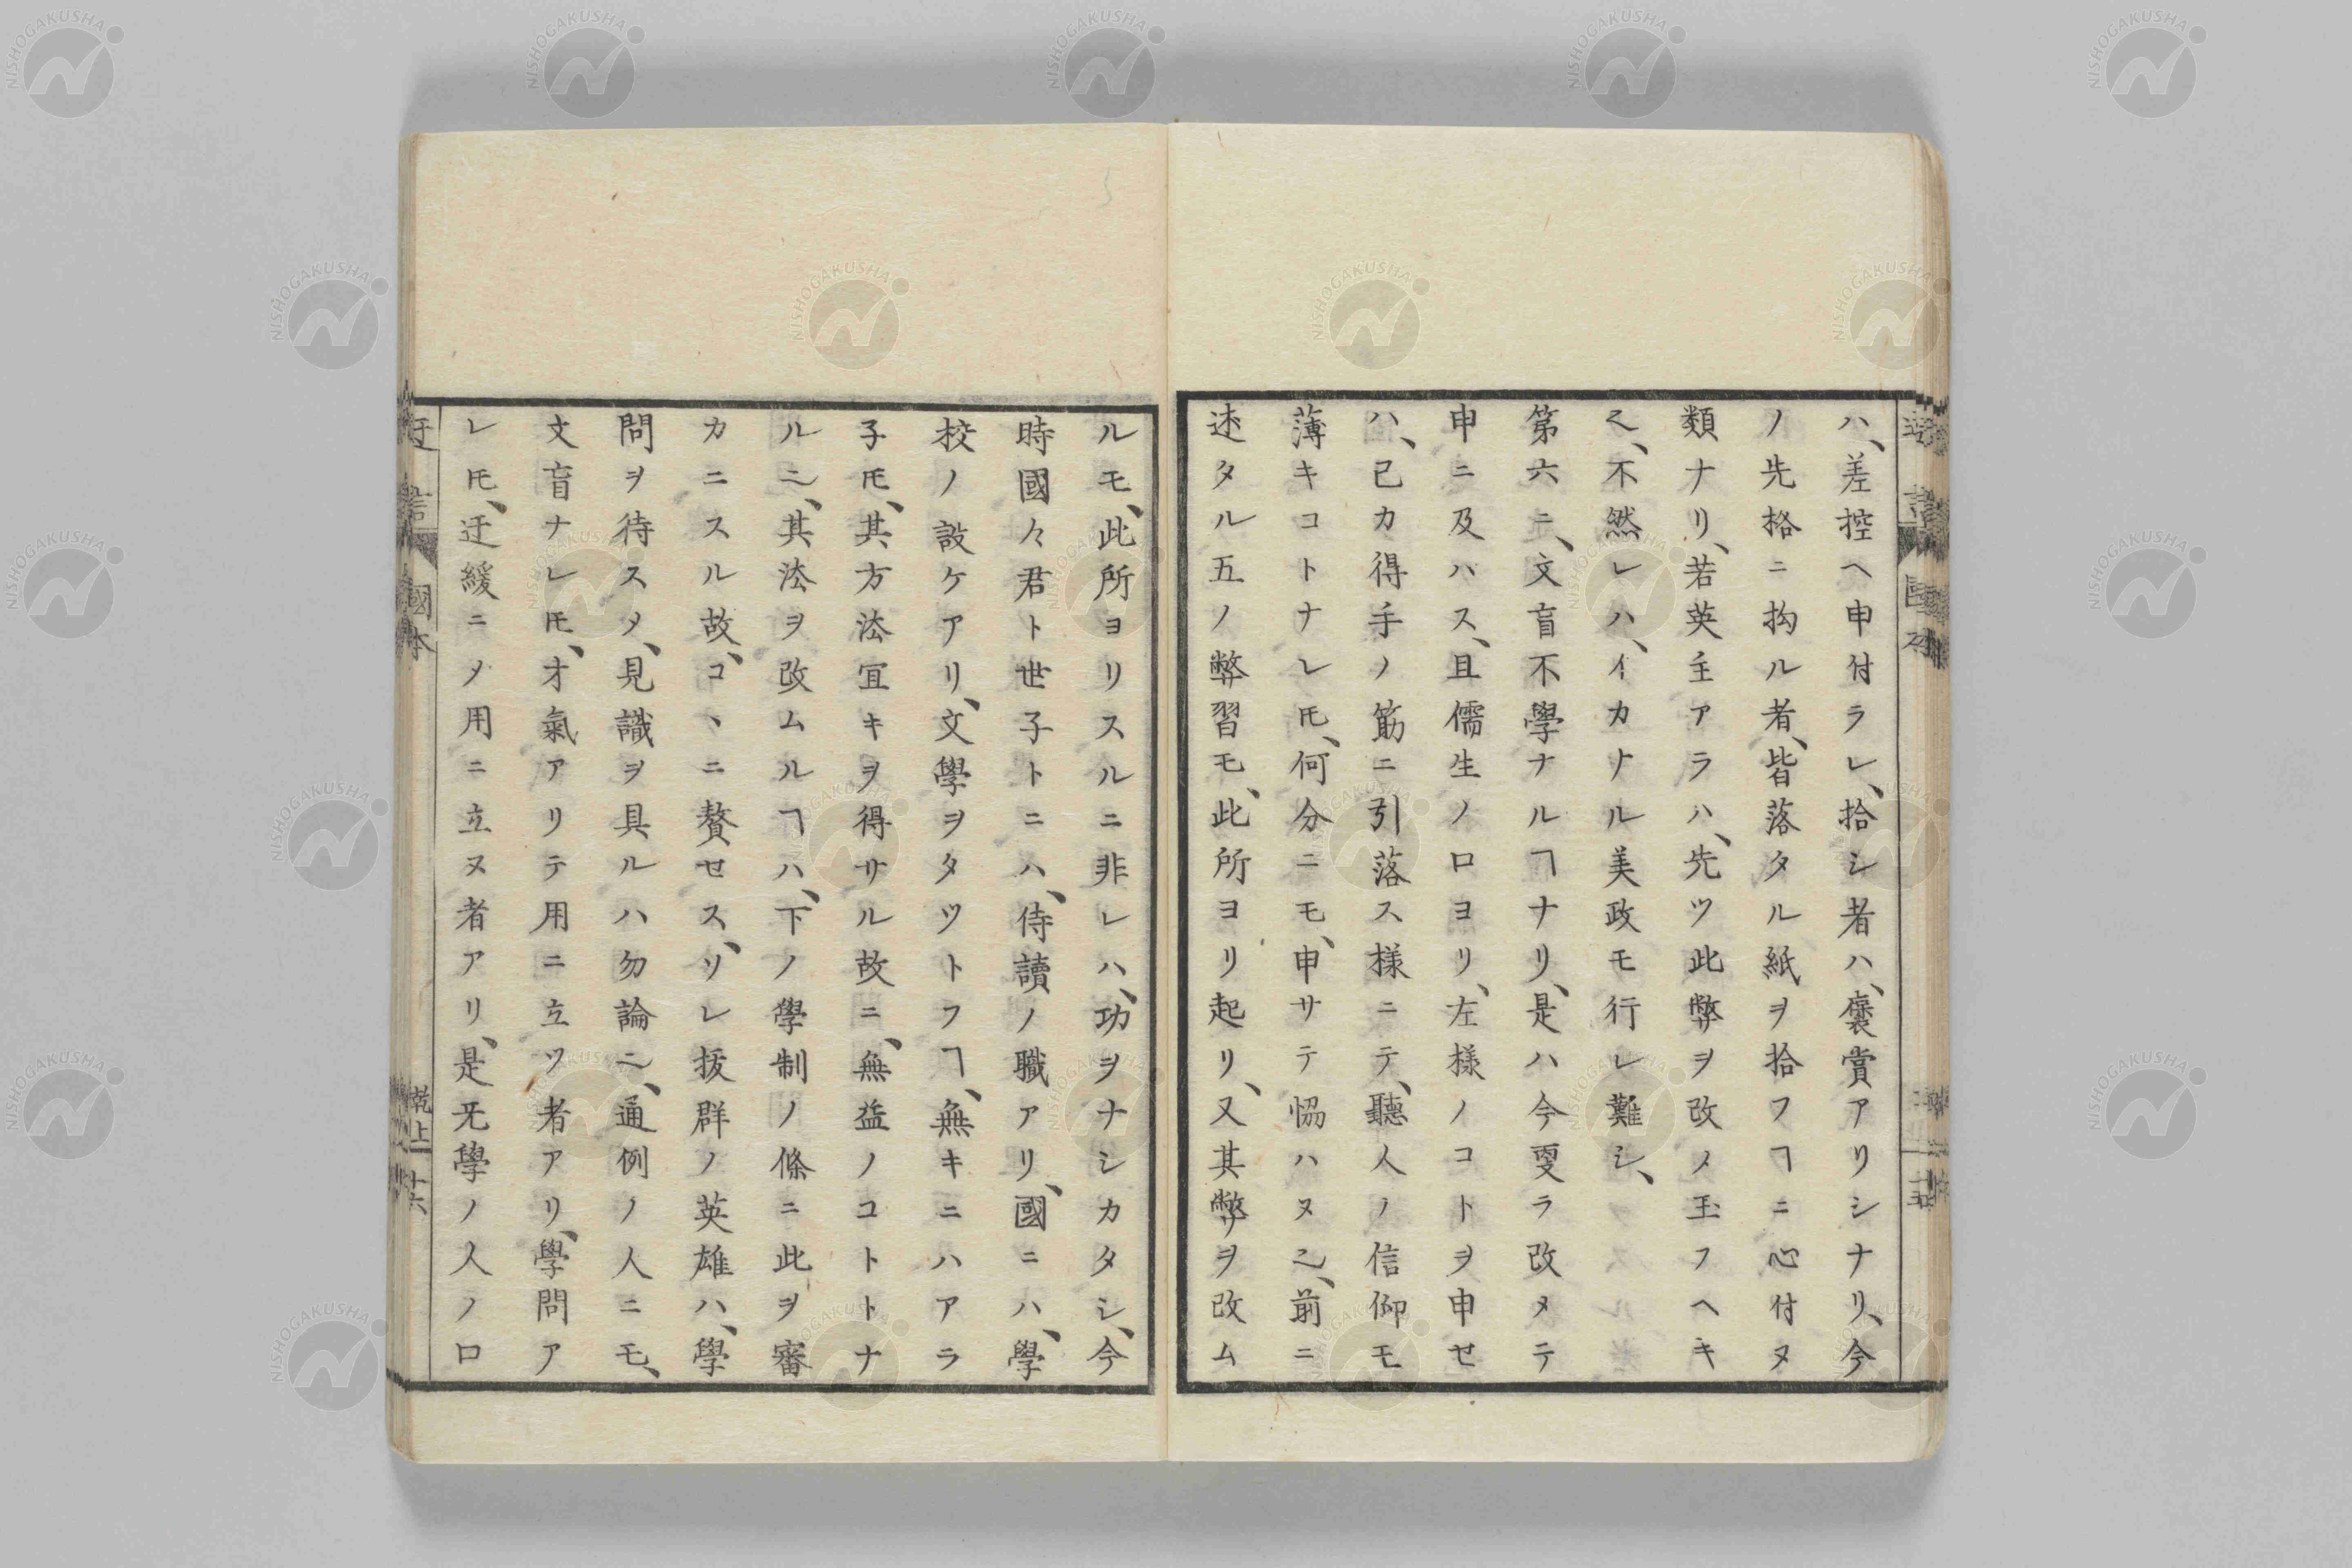 ハ、差控ヘ申付ラレ、拾シ者ハ、褒賞アリシナリ、今
ノ先格ニ拘ル者、皆落タル紙ヲ拾フヿニ心付ヌ
類ナリ、若英主アラハ、先ツ此弊ヲ改メ玉フヘキ
也、不然レハ、イカナル美政モ行レ難シ、
第六ニ、文盲不學ナルヿナリ、是ハ今更ラ改メテ
申ニ及ハス、且儒生ノ口ヨリ、左樣ノコトヲ申セ
ハ、己カ得手ノ筋ニ引落ス樣ニテ、聽人ノ信仰モ
薄キコトナレ𪜈、何分ニモ、申サテ恊ハヌ也、前ニ
述タル五ノ弊習モ、此所ヨリ起リ、又其弊ヲ改ム
ルモ、此所ヨリスルニ非レハ、功ヲナシカタシ、今
時國々君ト世子トニハ、侍讀ノ職アリ、國ニハ、學
校ノ設ケアリ、文學ヲタツトフヿ、無キニハアラ
子𪜈、其方法宜キヲ得サル故ニ、無益ノコトトナ
ルニ、其法ヲ改ムルヿハ、下ノ學制ノ條ニ此ヲ審
カニスル故、コヽニ贅セス、ソレ拔群ノ英雄ハ、學
問ヲ待スメ、見識ヲ具ルハ勿論ニ、通例ノ人ニモ、
文盲ナレ𪜈、才氣アリテ用ニ立ツ者アリ、學問ア
レ𪜈、迂緩ニメ用ニ立ヌ者アリ、是旡學ノ人ノ口
迂言 國本 乾上 廿六